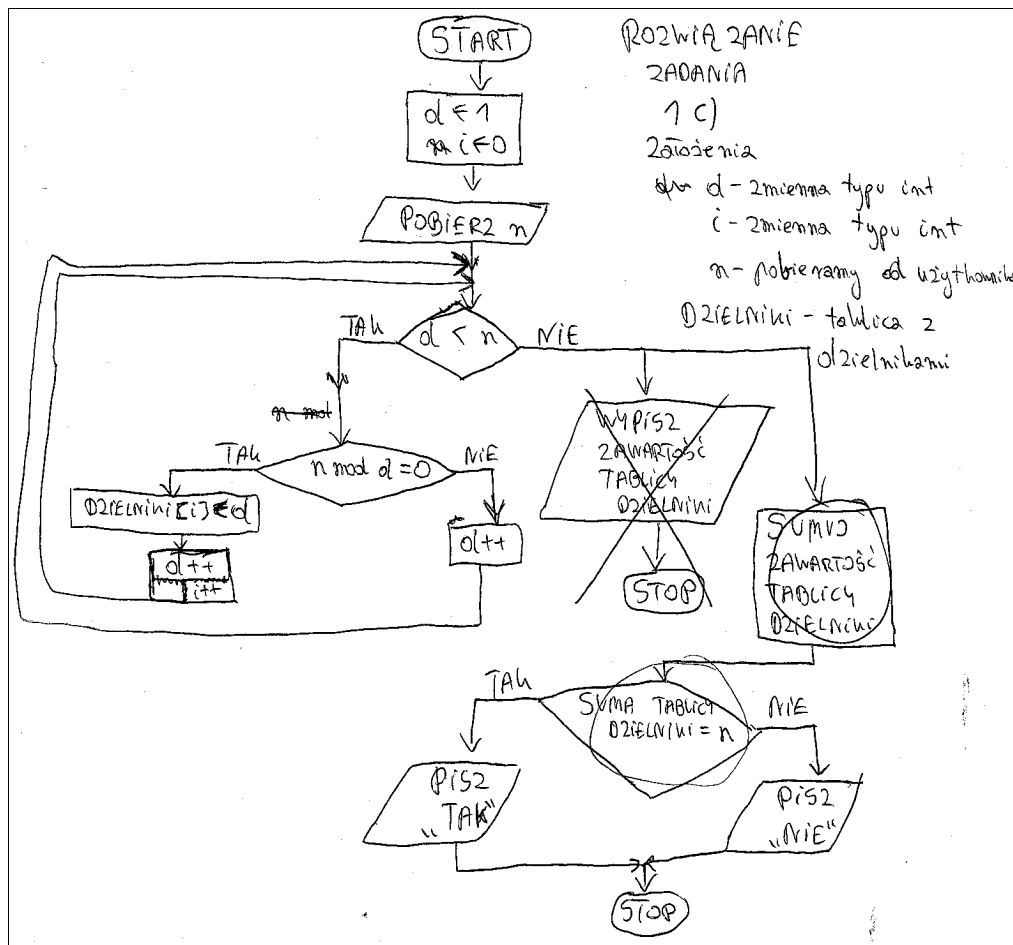 START
ROZWIĄZANIE
ZADANIA
1 C)
Założenia
d - zmienna typu int
i - zmienna typu int
n - pobieramy od użytkownika
DZIELNIKI - tablica z
dzielnikami
d ← 1
i ← 0
POBIERZ n
TAK
d < n
NIE
n mod
TAK
n mod d = 0
NIE
DZIELNIKI [i] ← d
d++
i++
d++
WYPISZ
ZAWARTOŚĆ
TABLICY
DZIELNIKI
STOP
SUMUJ
ZAWARTOŚĆ
TABLICY
DZIELNIKI
TAK
SUMA TABLICY
DZIELNIKI = n
NIE
PISZ
„TAK"
PISZ
„NIE"
STOP